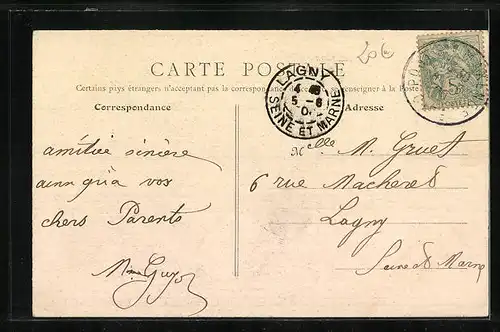 20€
CARTE POSTALE
Certains pays étrangers n'acceptant pas la correspondance de ce côté, se renseigner à la Poste
Correspondance
Adresse
LAGNY
5-6
SEINE ET MARNE
amitié sincère
ainsi qu'à vos
chers Parents
M. Guyot
Melle M. Gruet
6 rue Macheret
Lagny
Seine & Marne